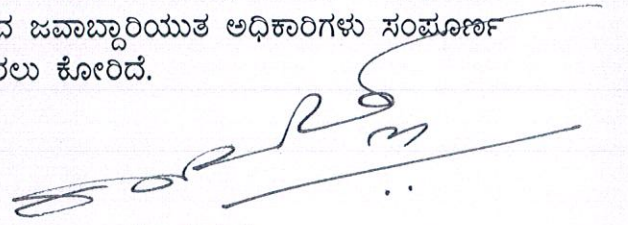 ದ ಜವಾಬ್ದಾರಿಯುತ ಅಧಿಕಾರಿಗಳು ಸಂಪೂರ್ಣ
ರಲು ಕೋರಿದೆ.